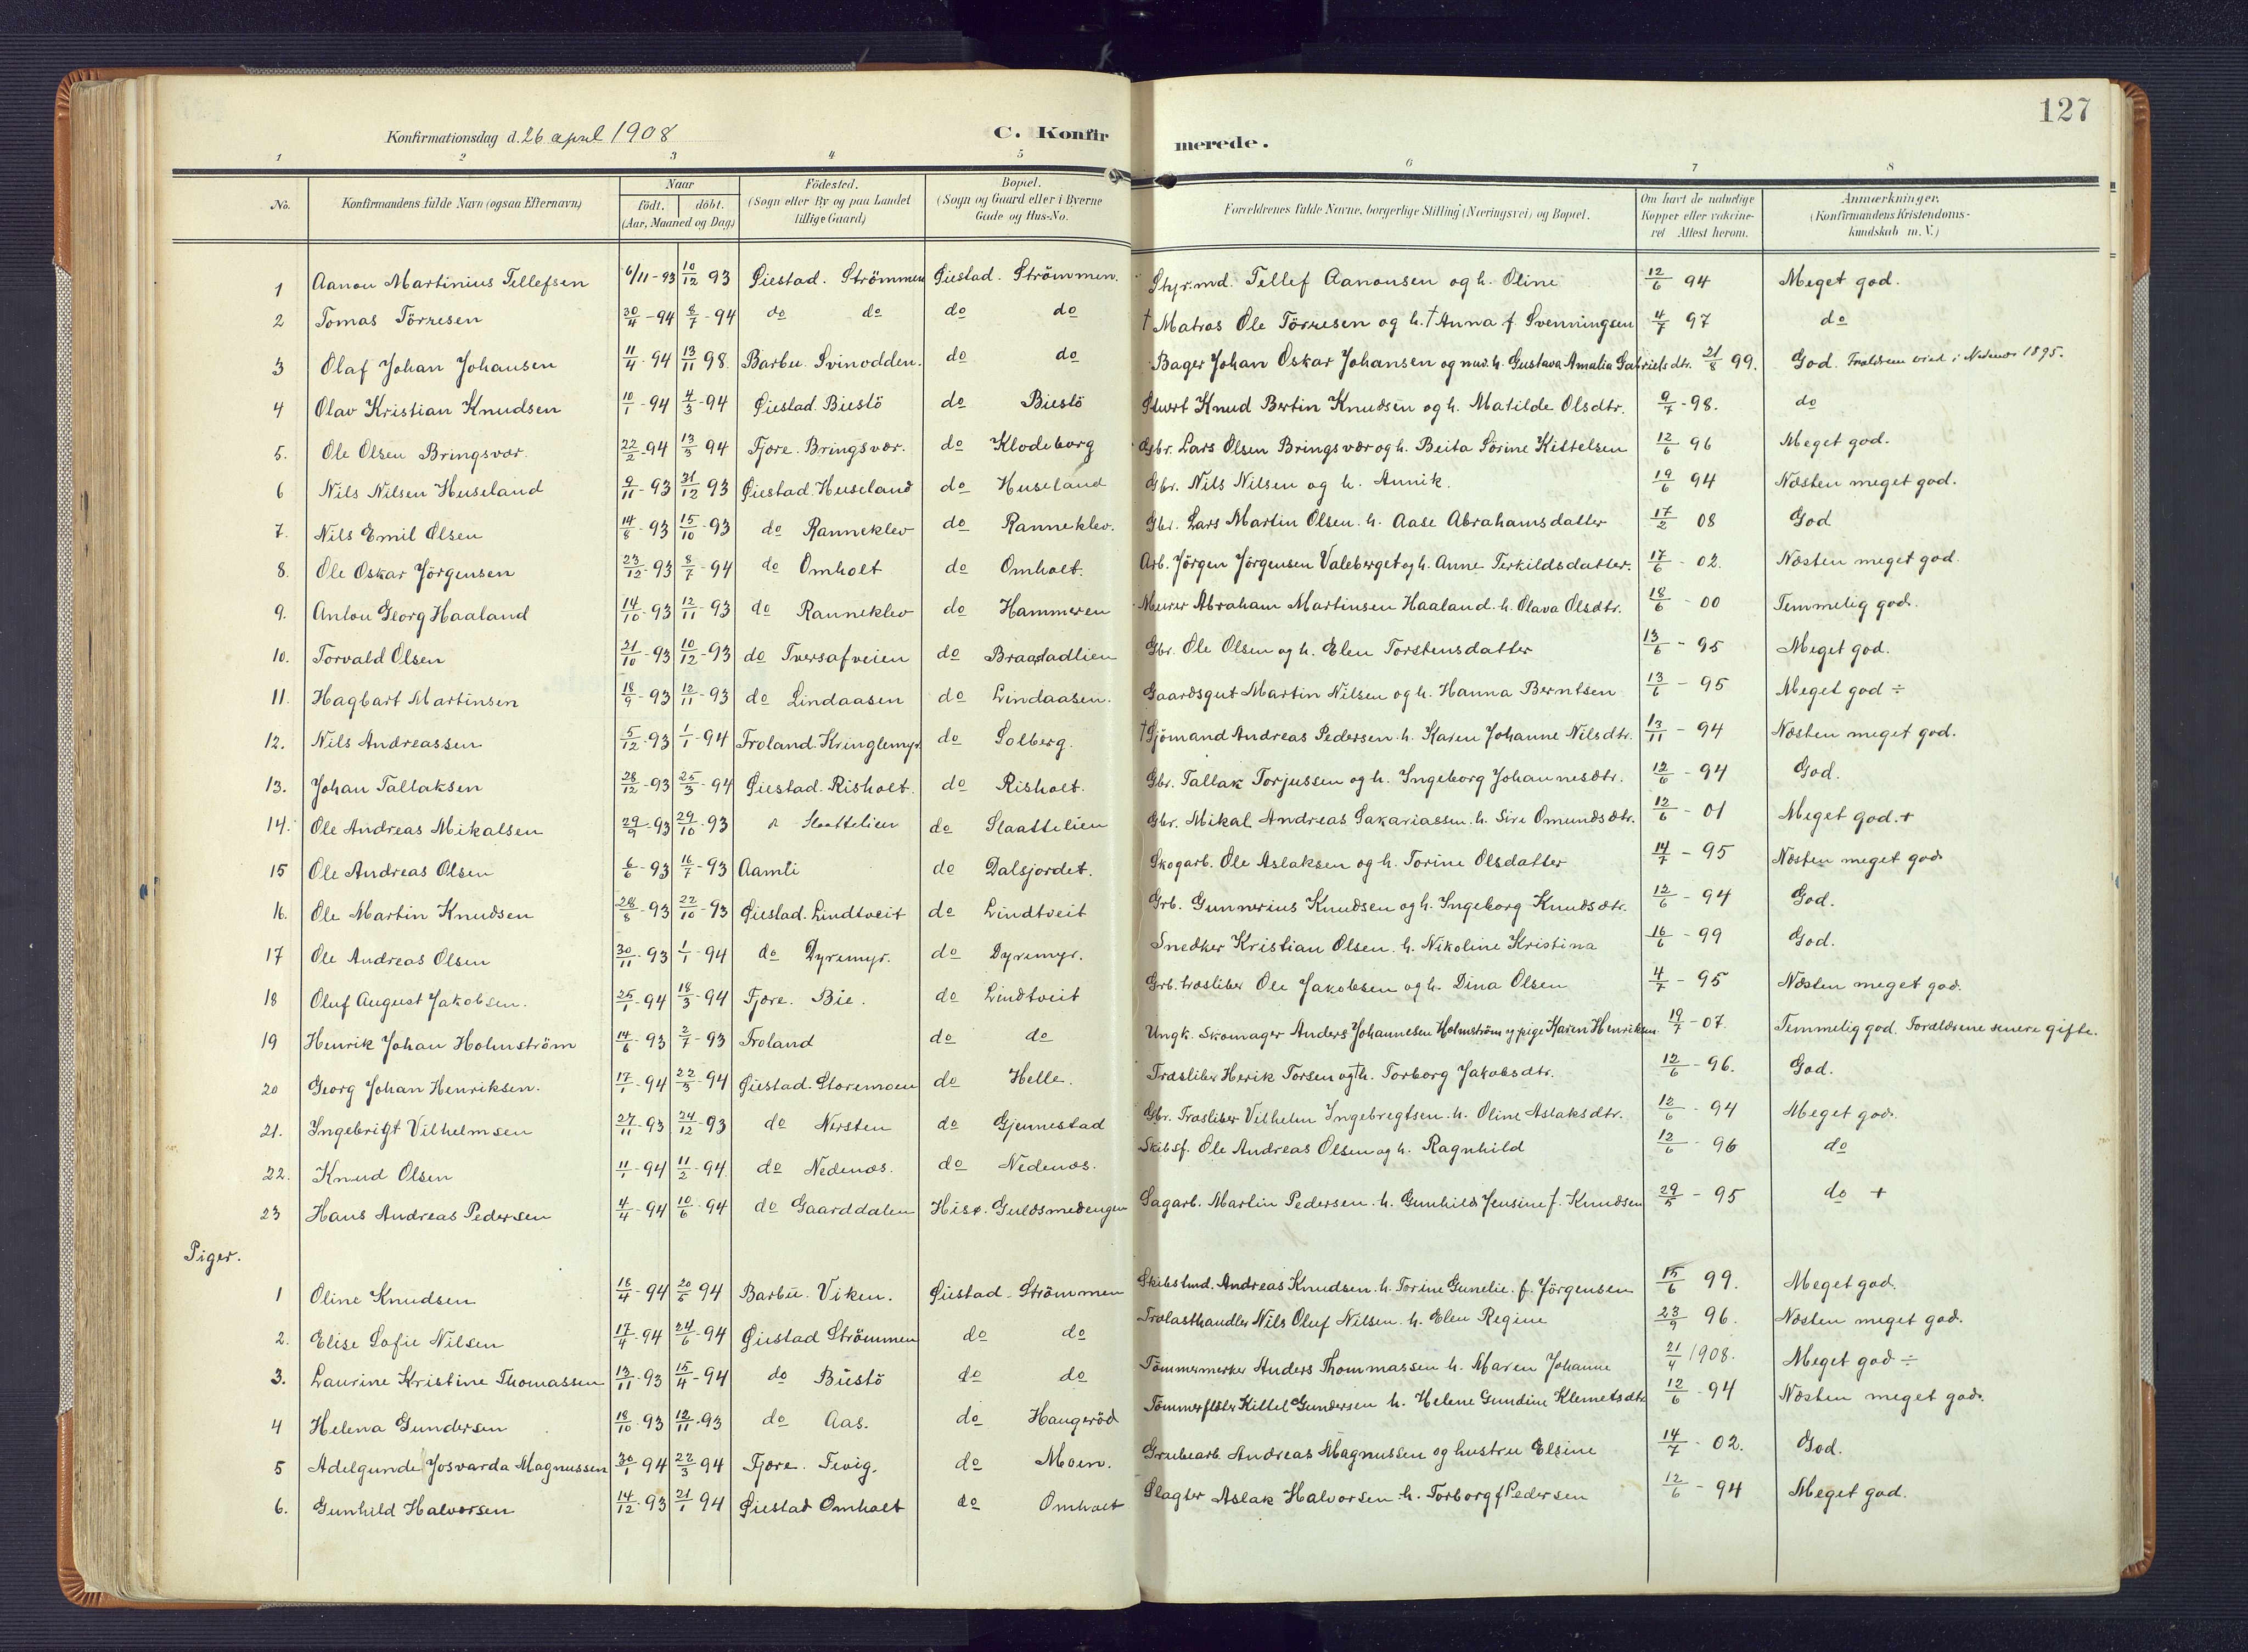 127
Konfirmationsdag d. 26 april 1908
C. Konfirmerede.
1 2 3 4 5 6 7 8
No. Konfirmandens fulde Navn (ogsaa Efternavn) Naar födt. döbt. (Aar, Maaned og Dag) Födested. (Sogn eller By og paa Landet tillige Gaard) Bopæl. (Sogn og Gaard eller i Byerne Gade og Hus-No. Forældrenes fulde Navne, borgerlige Stilling (Næringsvei) og Bopæl. Om havt de naturlige Kopper eller vakcineret Attest herom. Anmærkninger. (Konfirmandens Kristendomskundskab m. V.)
1 Aanon Martinius Tellefsen 6/11-93 10/12 93 Øiestad. Strömmen Øiestad. Strömmen. Styrmd. Tellef Aanonsen og h. Oline 12/6 94 Meget god.
2 Tomas Törresen 30/4-94 8/7-94 do do do do † Matros Ole Törresen og h. † Anna f. Svenningsen 4/7 97 do
3 Olaf Johan Johansen 11/4 94 13/11 98 Barbu. Svinodden. do do Bager Johan Oskar Johansen og nuv. h. Gustava Amalia Gabrielsdtr. 21/8 99. God. Forældrene viet i Nedenes 1895.
4 Olav Kristian Knudsen 10/1-94 4/3-94 Øiestad. Biestö do Biestö Stuert Knud Bertin Knudsen og h. Matilde Olsdtr. 9/7-98. do
5. Ole Olsen Bringsvær. 22/2-94 13/5 94 Fjære. Bringsvær. do Klodeborg Gbr. Lars Olsen Bringsvær og h. Beita Sörine Kittelsen 12/6 96 Meget god.
6 Nils Nilsen Huseland 9/11-93 31/12 93 Øiestad. Huseland do Huseland Gbr. Nils Nilsen og h. Annik. 19/6 94 Næsten meget god.
7. Nils Emil Olsen 14/8-93 15/10-93 do Ranneklev do Ranneklev. Gbr. Lars Martin Olsen. h. Aase Abrahamsdatter 17/2 08 God
8. Ole Oskar Jörgensen 23/12-93 8/7-94 do Omholt do Omholt. Arb. Jörgen Jörgensen Valeberget og h. Anne Terkildsdatter. 17/6-02. Næsten meget god.
9. Anton Georg Haaland 14/10-93 12/11-93 do Ranneklev do Hammeren Murer Abraham Martinsen Haaland. h. Olava Olsdtr. 18/6-00 Temmelig god.
10. Torvald Olsen 21/10-93 10/12-93 do Tversafveien do Braastadlien Gbr. Ole Olsen og h. Elen Torstensdatter 13/6-95 Meget god.
11. Hagbart Martinsen 18/9-93 12/11-93 do Lindaasen do Lindaasen. Gaardsgut Martin Nilsen og h. Hanna Berntsen 13/6-95 Meget god ÷
12. Nils Andreassen 5/12-93 1/1-94 Froland. Kringlemyr. do Solberg. † Sjömand Andreas Pedersen. h. Karen Johanne Nilsdtr. 13/11-94 Næsten meget god.
13. Johan Tallaksen 28/12-93 25/3-94 Øiestad. Risholt. do Risholt. Gbr. Tallak Torjussen og h. Ingeborg Johannesdtr. 12/6-94 God.
14. Ole Andreas Mikalsen 29/9-93 29/10-93 Slaattelien do Slaattelien Gbr. Mikal Andreas Sakariassen. h. Sire Omundsdtr. 12/6-01 Meget god.+
15 Ole Andreas Olsen 6/6-93 16/7-93 Aamli do Dalsjordet. Skogarb. Ole Aslaksen og h. Torine Olsdatter 14/7-95 Næsten meget god
16. Ole Martin Knudsen 28/8-93 22/10-93 Øiestad. Lindtveit do Lindtveit Grb. Gunnerius Knudsen og h. Ingeborg Knudsdtr. 12/6-94 God.
17 Ole Andreas Olsen 30/11-93 1/1-94 do Dyremyr. do Dyremyr. Snedker Kristian Olsen. h. Nikoline Kristina 16/6-99 God.
18 Oluf August Jakobsen. 25/1-94 18/3-94 Fjære. Bie. do Lindtveit Grb. træsliber Ole Jakobsen og h. Dina Olsen 4/7-95 Næsten meget god.
19 Henrik Johan Holmström 14/6-93 2/7-93 Froland do do Ungk. Skomager Anders Johannesen Holmström og pige Karen Henriksen 19/7-07. Temmelig god. Forældrene senere gifte.
20 Georg Johan Henriksen. 17/1-94 22/5-94 Øiestad. Storemoen do Helle. Træsliber Herik Torsen og † h. Torborg Jakobsdtr. 12/6-96. God.
21. Ingebrigt Vilhelmsen 27/11-93 24/12-93 do Nersten do Gjennestad Gbr. Træsliber Vilhelm Ingebregtsen. h. Oline Aslaksdtr. 12/6-94 Meget god.
22. Knud Olsen 11/1-94 11/2-94. do Nedenæs. do Nedenæs. Skibsf. Ole Andreas Olsen og h. Ragnhild 12/6-96 do
23 Hans Andreas Pedersen 4/4-94 10/6-94 do Gaarddalen Hisø. Guldsmedengen Sagarb. Martin Pedersen. h. Gunhild Jensine f. Knudsen 29/5-95 do +
Piger.
1 Oline Knudsen 18/4-94 20/5 94 Barbu. Viken. Øiestad. Strömmen Skibstmd. Andreas Knudsen. h. Torine Gunelie. f. Jörgensen 15/6 99. Meget god.
2. Elise Sofie Nilsen 17/4-94 24/6-94 Øiestad Strömmen do do Trælasthandler Nils Oluf Nilsen. h. Elen Regine 23/9 96. Næsten meget god.
3. Laurine Kristine Thomassen 13/11-93 15/4-94 do Biestö do do Tömmermerker Anders Thommassen h. Maren Johanne 21/4 1908. Meget god ÷
4 Helena Gundersen 18/10-93 12/11-93 do Aas. do Haugeröd Tömmerfløter Kittel Gundersen h. Helene Gundine Klemetsdtr. 12/6-94 Næsten meget god.
5 Adelgunde Josvarda Magnussen 30/1 94 22/3 94 Fjære. Fevig. do Moen. Grubearb. Andreas Magnussen og hustru Elsine 14/7-02. God.
6. Gunhild Halvorsen 14/12-93 21/1 94 Øiestad Omholt do Omholt Slagter Aslak Halvorsen. h. Torborg f Pedersen 12/6-94 Meget god.